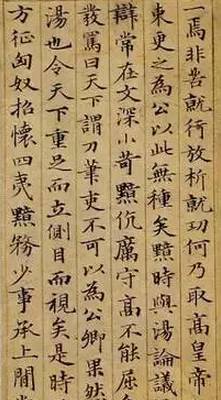 一焉非苦就行放析就功何乃取高皇帝
束更之為公以此無種矣黯時與湯論議
辯常在文深小苛黯伉厲守高不能屈
發罵曰天下謂刀筆吏不可以為公卿果然
湯也令天下重足而立側目而視矣是時
方征匈奴招懷四夷黯務少事承上間